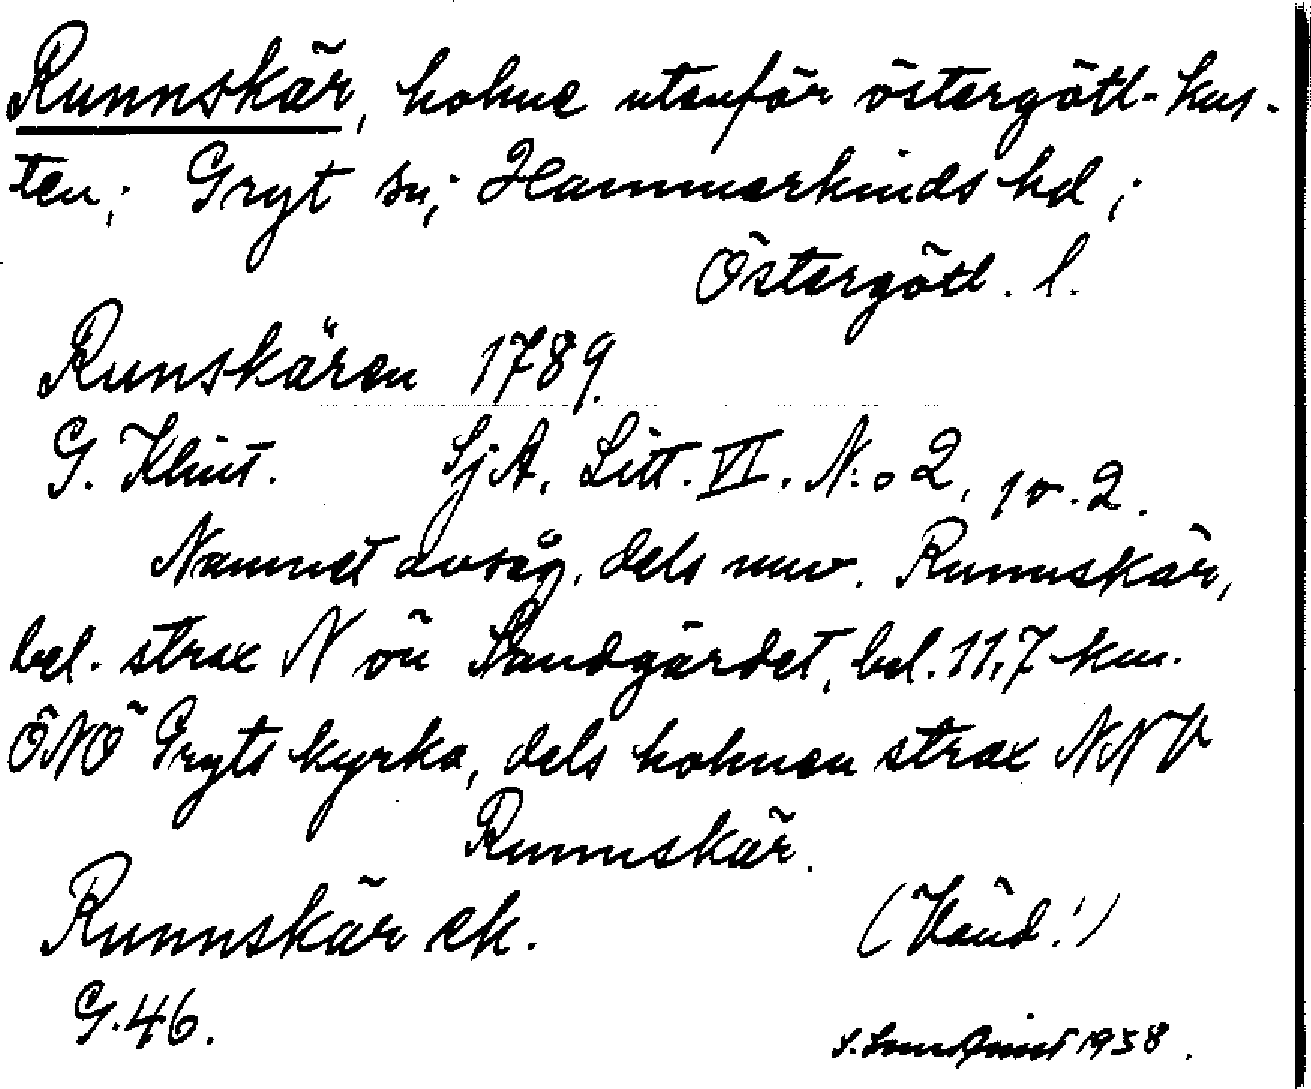 Runnskär, holme utanför östergötl-kus-
ten; Gryt sn; Hammarkinds hd;
Östergötl. l.
Runskären 1789.
G. Klint. SjA. Litt. VI. N:o 2, 1 o. 2.
Namnet avsåg, dels nuv. Runnskär,
bel. strax N ön Sandgärdet, bel. 11,7 km.
ÖNÖ Gryts kyrka, dels holmen strax NNV
Runnskär.
Runnskär ek. (Vänd!)
G.46. 1938.